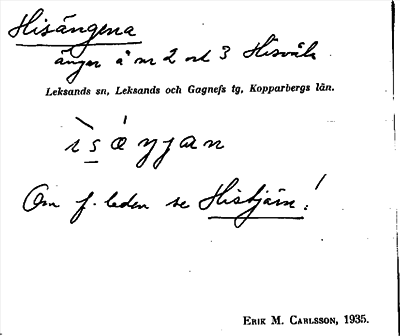 Hisängena
ängar å nr 2 och 3 Hisvåla
Leksands sn, Leksands och Gagnefs tg, Kopparbergs län.
ìsæŋjan
Om f. leden se Histjärn!
ERIK M. CARLSSON, 1935.